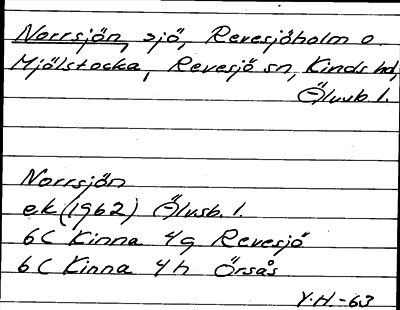 Norrsjön, sjö, Revesjöholm o.
Mjälstocka, Revesjö sn, Kinds hd,
Älvsb. l.
Norrsjön
ek (1962) Älvsb. l.
6C Kinna 4g Revesjö
6C Kinna 4h Örsås
Y.H.-63